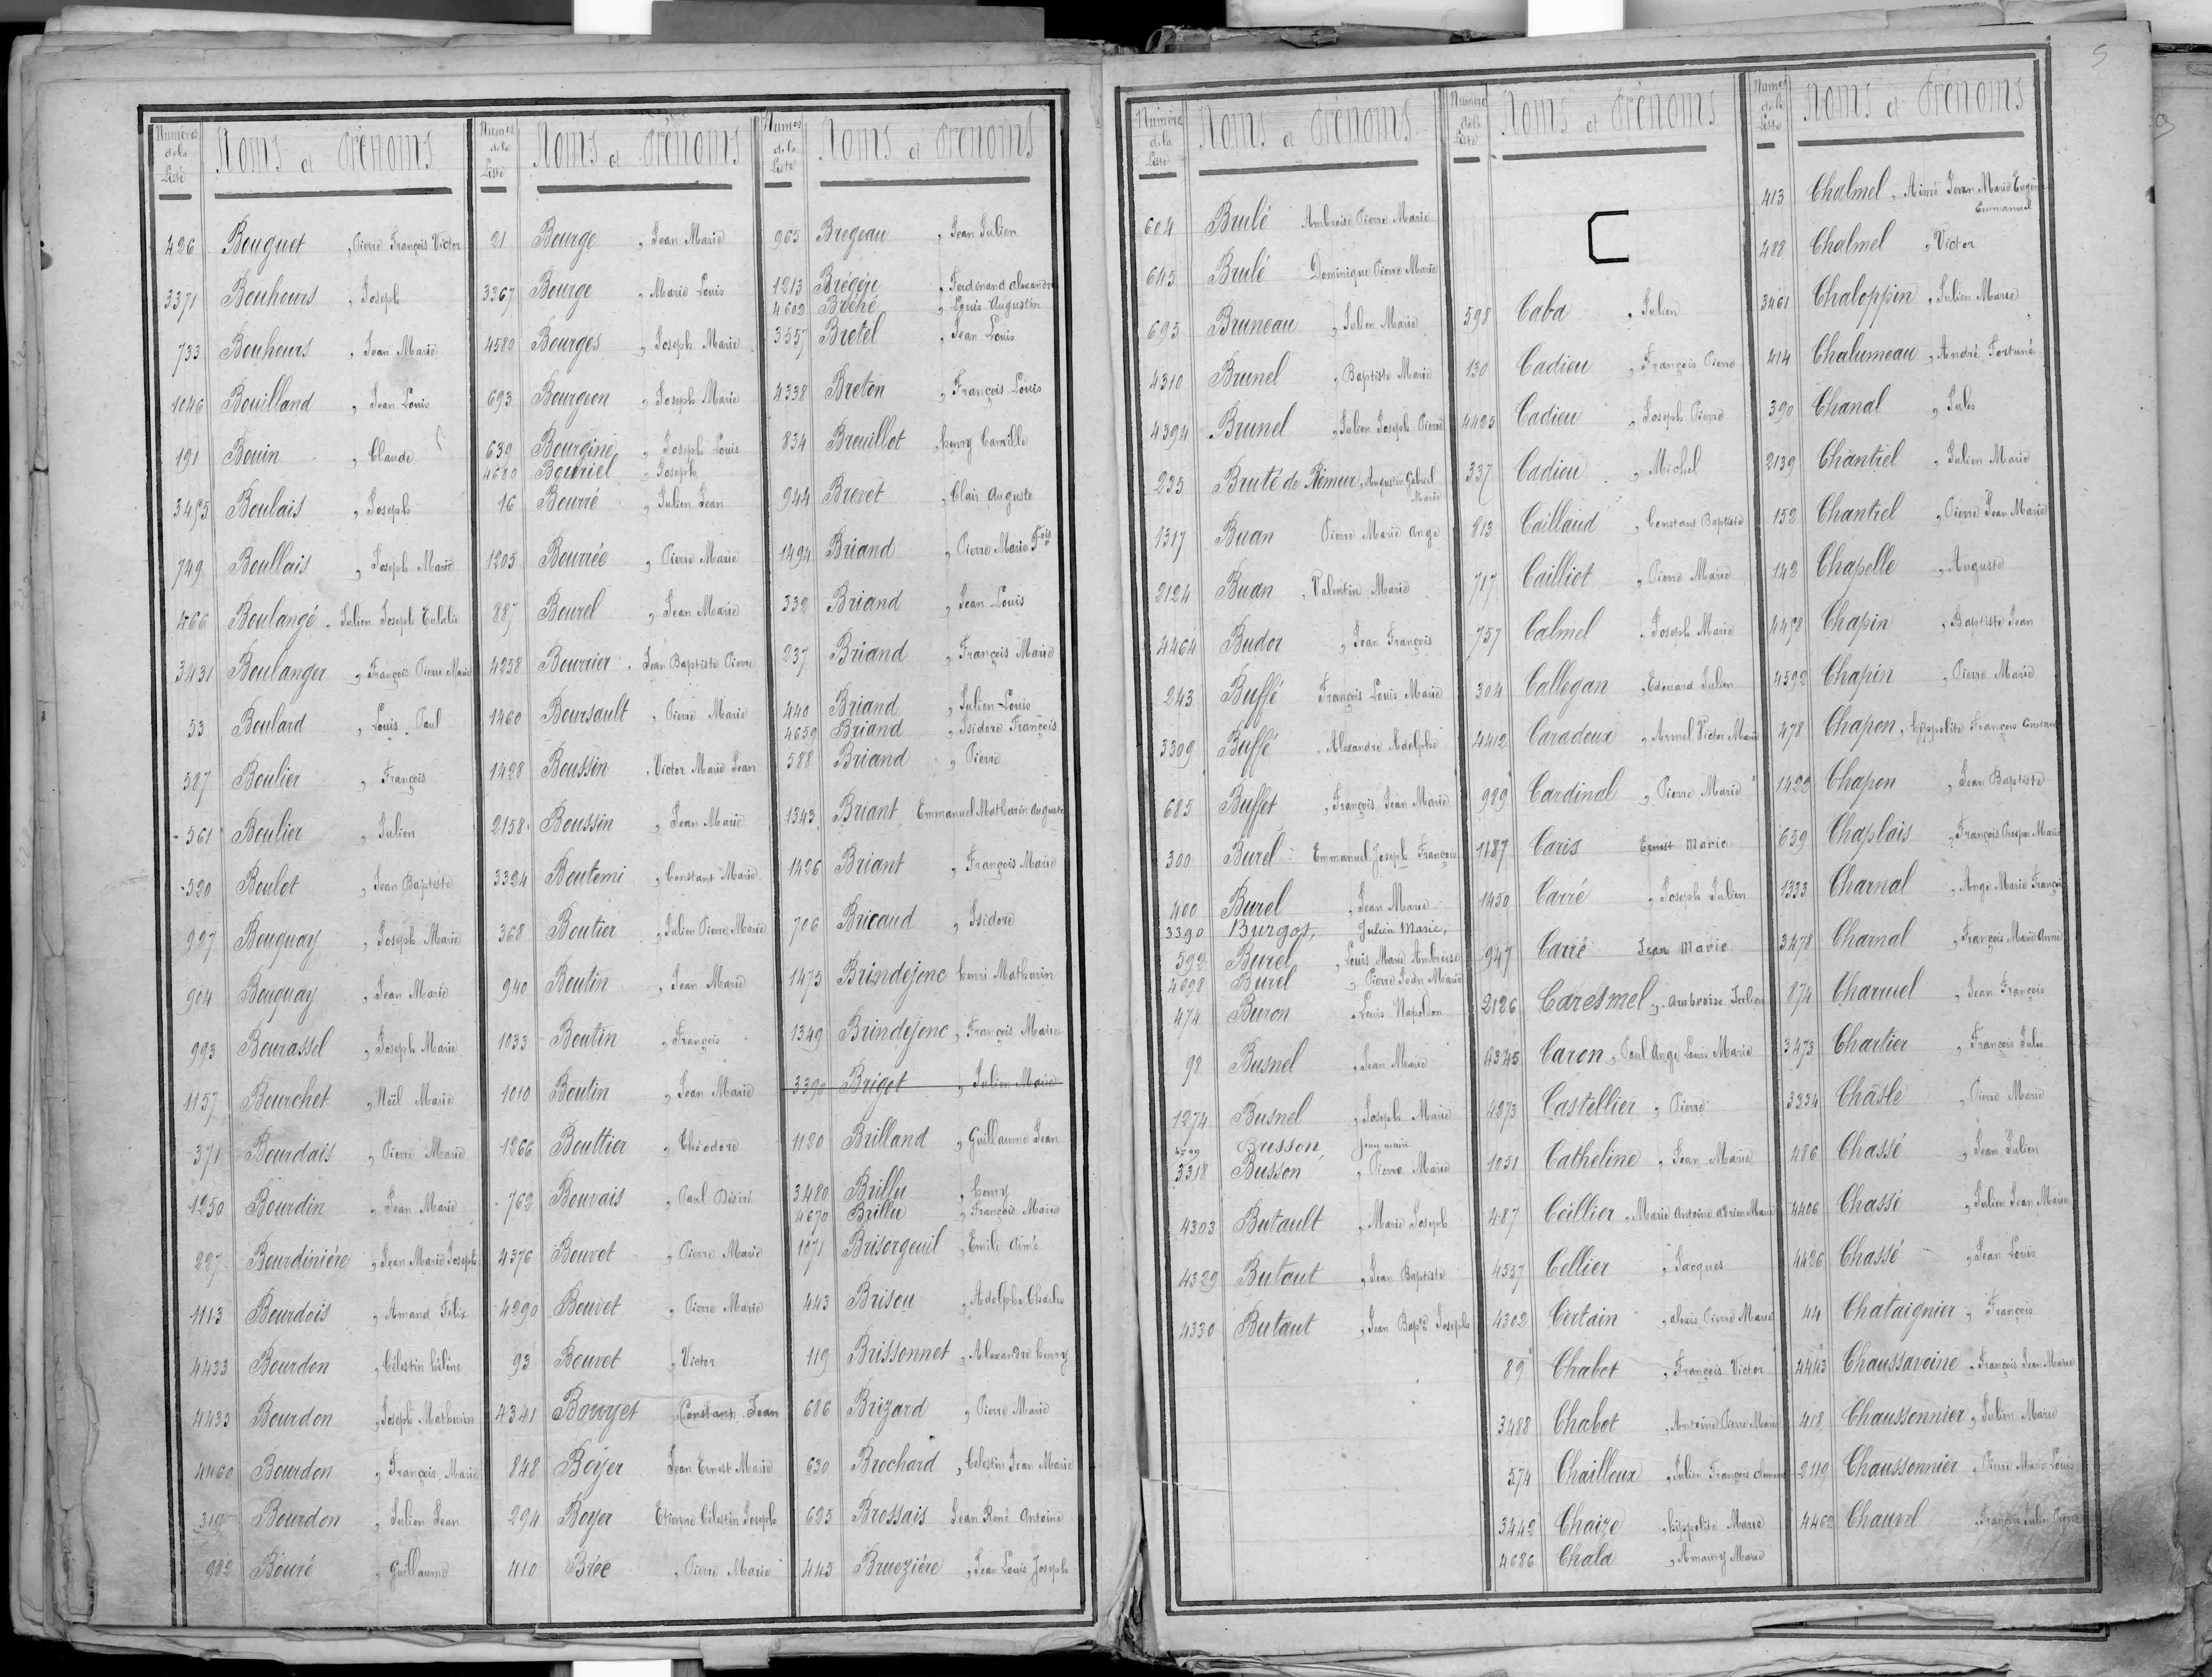 Numéros de la Liste Noms et Prénoms
426 Bouguet , Pierre François Victor
3371 Bouhours , Joseph
733 Bouhours , Jean Marie
1046 Bouilland , Jean Louis
191 Bouin , Claude
3455 Boulais , Joseph
749 Boullais , Joseph Marie
466 Boulangé , Julien Joseph Eulalie
3431 Boulanger , François Pierre Marie
53 Boulard , Louis Paul
587 Boulier , François
561 Boulier , Julien
520 Boulot , Jean Baptiste
997 Bouquay , Joseph Marie
904 Bouquay , Jean Marie
993 Bourassel , Joseph Marie
1157 Bourchet , Noël Marie
371 Bourdais , Pierre Marie
1250 Bourdin , Jean Marie
227 Bourdinière , Jean Marie Joseph
1113 Bourdois , Amand Félix
4433 Bourdon , Célestin hélène
4435 Bourdon , Joseph Mathurin
4460 Bourdon , François Marie
319 Bourdon , Julien Jean
982 Bouré , Guillaume
Numéos de la Liste Noms et Prénoms
21 Bourge , Jean Marie
3367 Bourge , Marie Louis
4580 Bourges , Joseph Marie
693 Bourgeon , Joseph Marie
639 Bourgine , Joseph Louis
4680 Bouriel , Joseph
16 Bourré , Julien Jean
1205 Bourrée , Pierre Marie
887 Bourel , Jean Marie
4258 Bourrier , Jean Baptiste Pierre
1460 Boursault , Pierre Marie
1428 Boussin , Victor Marie Jean
2158 Boussin , Jean Marie
3324 Boutemi , Constant Marie
368 Boutier , Julien Pierre Marie
940 Boutin , Jean Marie
1033 Boutin , François
1010 Boutin , Jean Marie
1266 Bouttier , Théodore
762 Bouvais , Paul Désiré
4376 Bouvet , Pierre Marie
4290 Bouvet , Pierre Marie
93 Bouvet , Victor
4341 Bouyet , Constant Jean
848 Boyer Jean Ernest Marie
294 Boyer Etienne Célestin Joseph
410 Brée , Pierre Marie
Numéos de la Liste Noms et Prénoms
965 Bregeau , Jean Julien
1213 Brégère , Ferdinand alexandre
4602 Bréhé , Louis Augustin
3557 Bretel , Jean Louis
4338 Breton , François Louis
834 Breuillot , henry Camille
944 Brevet , Clair Auguste
1494 Briand , Pierre Marie Fois
332 Briand , Jean Louis
237 Briand , François Marie
440 Briand , Julien Louis
4659 Briand , Isidore François
588 Briand , Pierre
1343 Briant Emmanuel Mathurin Auguste
1426 Briant , François Marie
706 Bricaud , Isidore
1475 Brindejonc henri Mathurin
1349 Brindejonc , François Marie
3390 Brigot , Julien Marie
1120 Brilland , Guillaume Jean
3480 Brillu , henry
4670 Brillu , François Marie
1071 Brisorgeuil , Emile Aimé
443 Brisou , Adolphe Charles
119 Brissonnet , Alexandre henry
686 Brizard , Pierre Marie
630 Brochard , Célestin Jean Marie
625 Brossais Jean René Antoine
445 Bruezière , Jean Louis Joseph
5
Numéro de la Liste Noms et Prénoms
604 Brulé Ambroise Pierre Marie
645 Brulé Dominique Pierre Marie
695 Bruneau , Julien Marie
4310 Brunel , Baptiste Marie
4394 Brunel , Julien Joseph Pierre
235 Bruté de Rémur , Augustin Gabriel Marie
1317 Buan Pierre Marie Ange
2124 Buan , Valentin Marie
4464 Budor , Jean François
243 Buffé François Louis Marie
3309 Buffé , Alexandre Adolphe
685 Buffet , François Jean Marie
300 Burel Emmanuel Joseph François
400 Burel , Jean Marie
3390 Burgot, Julien Marie,
592 Burel , Louis Marie Ambroise
4698 Burel , Pierre Jean Marie
474 Buron , Louis Napoléon
98 Busnel , Jean Marie
1274 Busnel , Joseph Marie
Busson, Jean marie
3318 Busson , Pierre Marie
4303 Butault , Marie Joseph
4329 Butaut , Jean Baptiste
4330 Butaut , Jean Bapte Joseph
Numéro de la Liste Noms et Prénoms
C
598 Caba , Julien
130 Cadieu , François Pierre
4425 Cadieu , Joseph Pierre
337 Cadieu , Michel
813 Caillaud , Constant Baptiste
717 Cailliot , Pierre Marie
757 Calmel , Joseph Marie
304 Callegan , Edouard Julien
4412 Caradeux , Armel Victor Marie
989 Cardinal , Pierre Marie
1187 Caris Ernest Marie
1450 Carré , Joseph Julien
947 Carré Jean Marie
2126 Caresmel , Ambroise Julien
4345 Caron , Paul Ange Louis Marie
4273 Castellier , Pierre
1051 Catheline , Jean Marie
487 Ceillier , Marie Antoine Adrien Marie
4557 Cellier , Jacques
4302 Certain , alexis Pierre Marie
89 Chabot , François Victor
3488 Chabot , Antoine Pierre Marie
574 Chailloux , Julien François Clément
3442 Chaize , hippolite Marie
4686 Chala , Amaury Marie
Numéo de la Liste Noms et Prénoms
413 Chalmel , Aimé Jean Marie Eugène Emmanuel
488 Chalmel , Victor
3461 Chaloppin , Julien Marie
414 Chalumeau , André Fortuné
390 Chanal , Jules
2139 Chantrel , Julien Marie
152 Chantrel , Pierre Jean Marie
142 Chapelle , Auguste
4458 Chapin , Baptiste Jean
4592 Chapin , Pierre Marie
478 Chapon , hyppolite François Constant
1422 Chapon , Jean Baptiste
659 Chaplais , François Prosper Marie
1333 Charnal , Ange Marie François
3478 Charnal , François Marie Anne
874 Charruel , Jean François
3473 Chartier , François Jules
3334 Châsle , Pierre Marie
486 Chassé , Jean Julien
4406 Chassé , Julien Jean Marie
4426 Chassé , Jean Louis
44 Chataignier , François
4443 Chaussavoine , François Jean Marie
418 Chaussonnier , Julien Marie
2119 Chaussonnier , Pierre Marie Louis
4462 Chauvel , François Julien Pierre